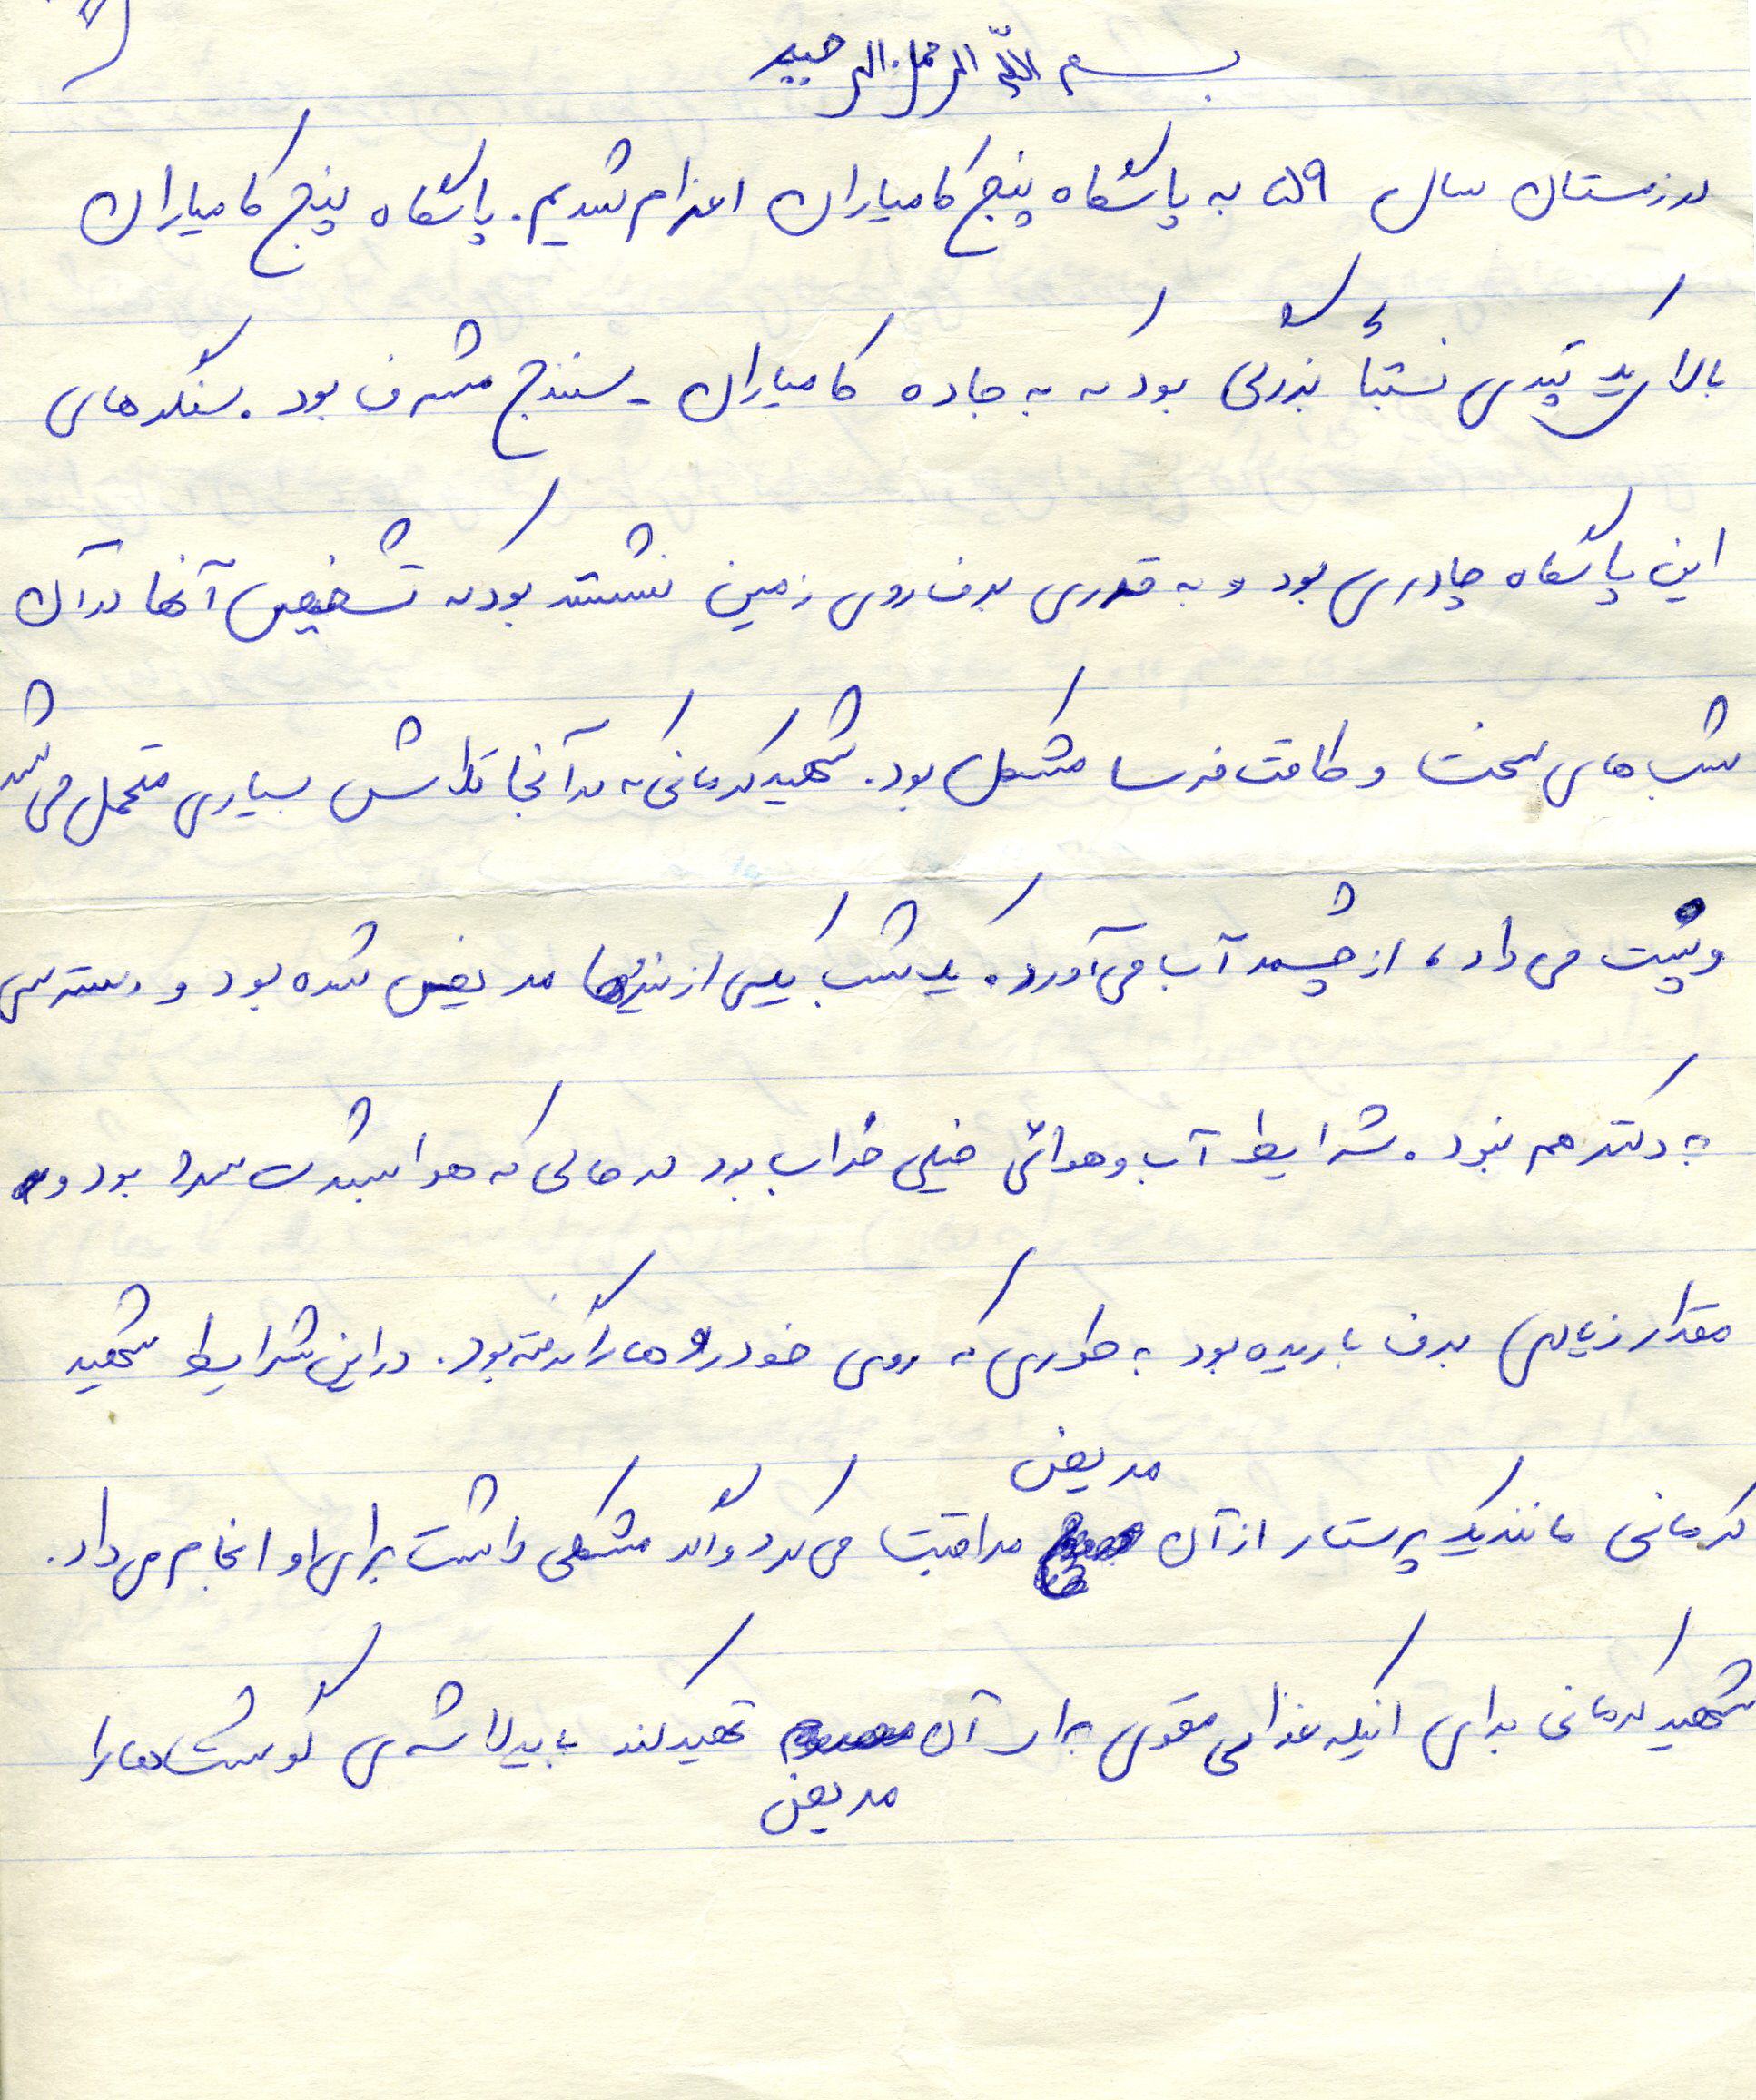 بسم الله الرحمن الرحیم
در زمستان سال ۵۹ به پاسگاه پنج کامیاران اعزام شدیم. پاسگاه پنج کامیاران
بالای یک تپه‌ی نسبتاً بزرگی بود که به جاده کامیاران - سنندج مشرف بود. سنگرهای
این پاسگاه چادری بود و به قدری برف روی زمین نشسته بود که تشخیص آنها در آن
شب‌های سخت و طاقت فرسا مشکل بود. شهید کرمانی که در آنجا تلاش بسیاری متحمل می‌شد
و پست می‌داد، از چشمه آب می‌آورد. یک شب یکی از نیروها مریض شده بود و دسترسی
به دکتر هم نبود. شرایط آب و هوائی خیلی خراب بود در حالی که هوا بشدت سرد بود و
مقدار زیادی برف باریده بود به طوری که روی خودروها را گرفته بود. در این شرایط شهید
کرمانی مانند یک پرستار از آن مریض مراقبت می‌کرد و اگر مشکلی داشت برای او انجام می‌داد.
شهید کرمانی برای اینکه غذایی مقوی برای آن مریض تهیه کند باید لاشه‌ی گوشت‌ها را